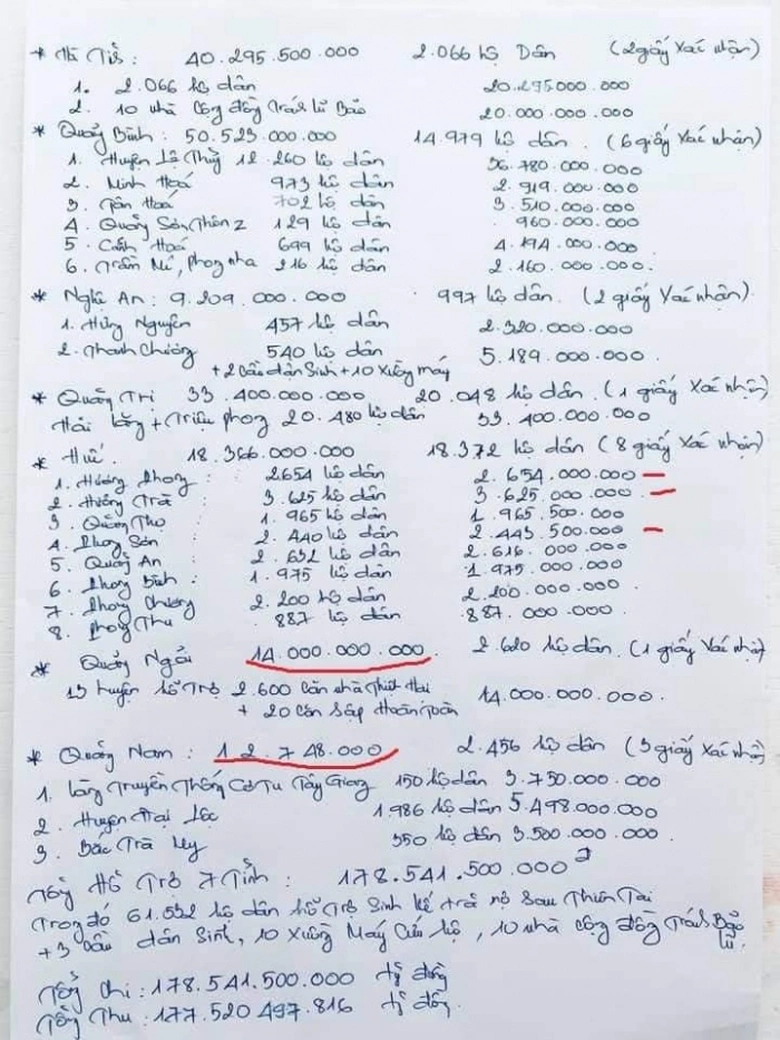 * Hà Tĩnh : 40.295.500.000 2.066 hộ Dân (2 giấy Xác nhận)
1. 2.066 hộ dân 20.295.000.000
2. 10 nhà cộng đồng Tránh lũ Bão 20.000.000.000
* Quảng Bình : 50.523.000.000 14.979 hộ dân. (6 giấy Xác nhận)
1. Huyện Lệ Thủy 12.260 hộ dân 36.780.000.000
2. Minh Hoá 973 hộ dân 2.919.000.000
3. Tân Hoá 702 hộ dân 3.510.000.000
4. Quảng Sơn, Thôn 2 129 hộ dân 960.000.000
5. Cảnh Hoá 699 hộ dân 4.194.000.000
6. Trầm Mé, Phong Nha 216 hộ dân 2.160.000.000.
* Nghệ An : 9.209.000.000 997 hộ dân. (2 giấy Xác nhận).
1. Hưng Nguyên 457 hộ dân 2.320.000.000
2. Thanh Chương 540 hộ dân 5.189.000.000
+ 2 Cầu dân Sinh + 10 Xuồng máy
* Quảng Trị 33.400.000.000 20.048 hộ dân. (1 giấy Xác nhận)
Hải Lăng + Triệu phong 20.480 hộ dân 33.400.000.000
* Huế. 18.366.000.000 18.372 hộ dân (8 giấy Xác nhận)
1. Hương Phong : 2654 hộ dân 2.654.000.000
2. Hương Trà : 3.625 hộ dân 3.625.000.000.
3. Quảng Thọ : 1.965 hộ dân 1.965.500.000
4. Phong Sơn : 2.440 hộ dân 2.443.500.000
5. Quảng An : 2.632 hộ dân 2.616.000.000
6. Phong Bình : 1.975 hộ dân 1.975.000.000
7. Phong Chương 2.200 hộ dân 2.200.000.000
8. Phong Thu 887 hộ dân 887.000.000
* Quảng Ngãi 14.000.000.000. 2.620 hộ dân. (1 giấy Xác nhận)
13 huyện hỗ Trợ 2.600 Căn nhà Thiệt Hại 14.000.000.000.
+ 20 Căn Sập Hoàn Toàn
* Quảng Nam : 12.748.000 2.456 hộ dân (3 giấy Xác nhận)
1. Làng Truyền Thống CơTu Tây Giang 150 hộ dân 3.750.000.000
2. Huyện Đại Lộc 1.986 hộ dân 5.498.000.000
3. Bắc Trà My 350 hộ dân 3.500.000.000.
Tổng Hỗ Trợ 7 Tỉnh : 178.541.500.000
Trong đó 61.532 hộ dân hỗ Trợ Sinh kế trả nợ Sau Thiên Tai
+ 3 Cầu dân Sinh, 10 Xuồng Máy Cứu hộ, 10 nhà cộng đồng Tránh Bão lũ.
Tổng Chi : 178.541.500.000 tỷ đồng
Tổng Thu : 177.520.497.816 tỷ đồng.